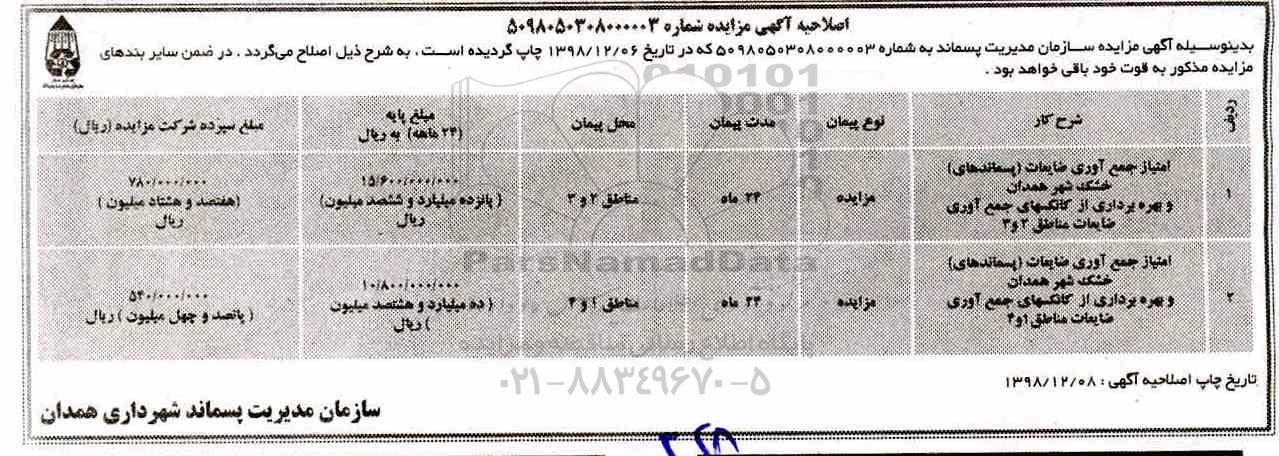 اصلاحیه آگهی مزایده شماره ۵۰۹۸۰۵۰۳۰۸۰۰۰۰۰۳
بدینوسیله آگهی مزایده سازمان مدیریت پسماند به شماره ۵۰۹۸۰۵۰۳۰۸۰۰۰۰۰۳ که در تاریخ ۱۳۹۸/۱۲/۰۶ چاپ گردیده است ، به شرح ذیل اصلاح می‌گردد . در ضمن سایر بندهای
مزایده مذکور به قوت خود باقی خواهد بود .
ردیف
شرح کار
نوع پیمان
مدت پیمان
محل پیمان
مبلغ پایه
(۲۴ ماهه) به ریال
مبلغ سپرده شرکت مزایده (ریال)
۱
امتیاز جمع آوری ضایعات (پسماندهای)
خشک شهر همدان
و بهره برداری از کانکسهای جمع آوری
ضایعات مناطق ۲و۳
مزایده
۲۴ ماه
مناطق ۲ و ۳
۱۵/۶۰۰/۰۰۰/۰۰۰
( پانزده میلیارد و ششصد میلیون)
ریال
۷۸۰/۰۰۰/۰۰۰
(هفتصد و هشتاد میلیون )
ریال
۲
امتیاز جمع آوری ضایعات (پسماندهای)
خشک شهر همدان
و بهره برداری از کانکسهای جمع آوری
ضایعات مناطق ۱و۴
مزایده
۲۴ ماه
مناطق ۱ و ۴
۱۰/۸۰۰/۰۰۰/۰۰۰
( ده میلیارد و هشتصد میلیون
) ریال
۵۴۰/۰۰۰/۰۰۰
( پانصد و چهل میلیون ) ریال
ParsNamadData
پایگاه اطلاع رسانی مناقصه و مزایده
۰۲۱-۸۸۳۴۹۶۷۰-۵
تاریخ چاپ اصلاحیه آگهی : ۱۳۹۸/۱۲/۰۸
سازمان مدیریت پسماند شهرداری همدان